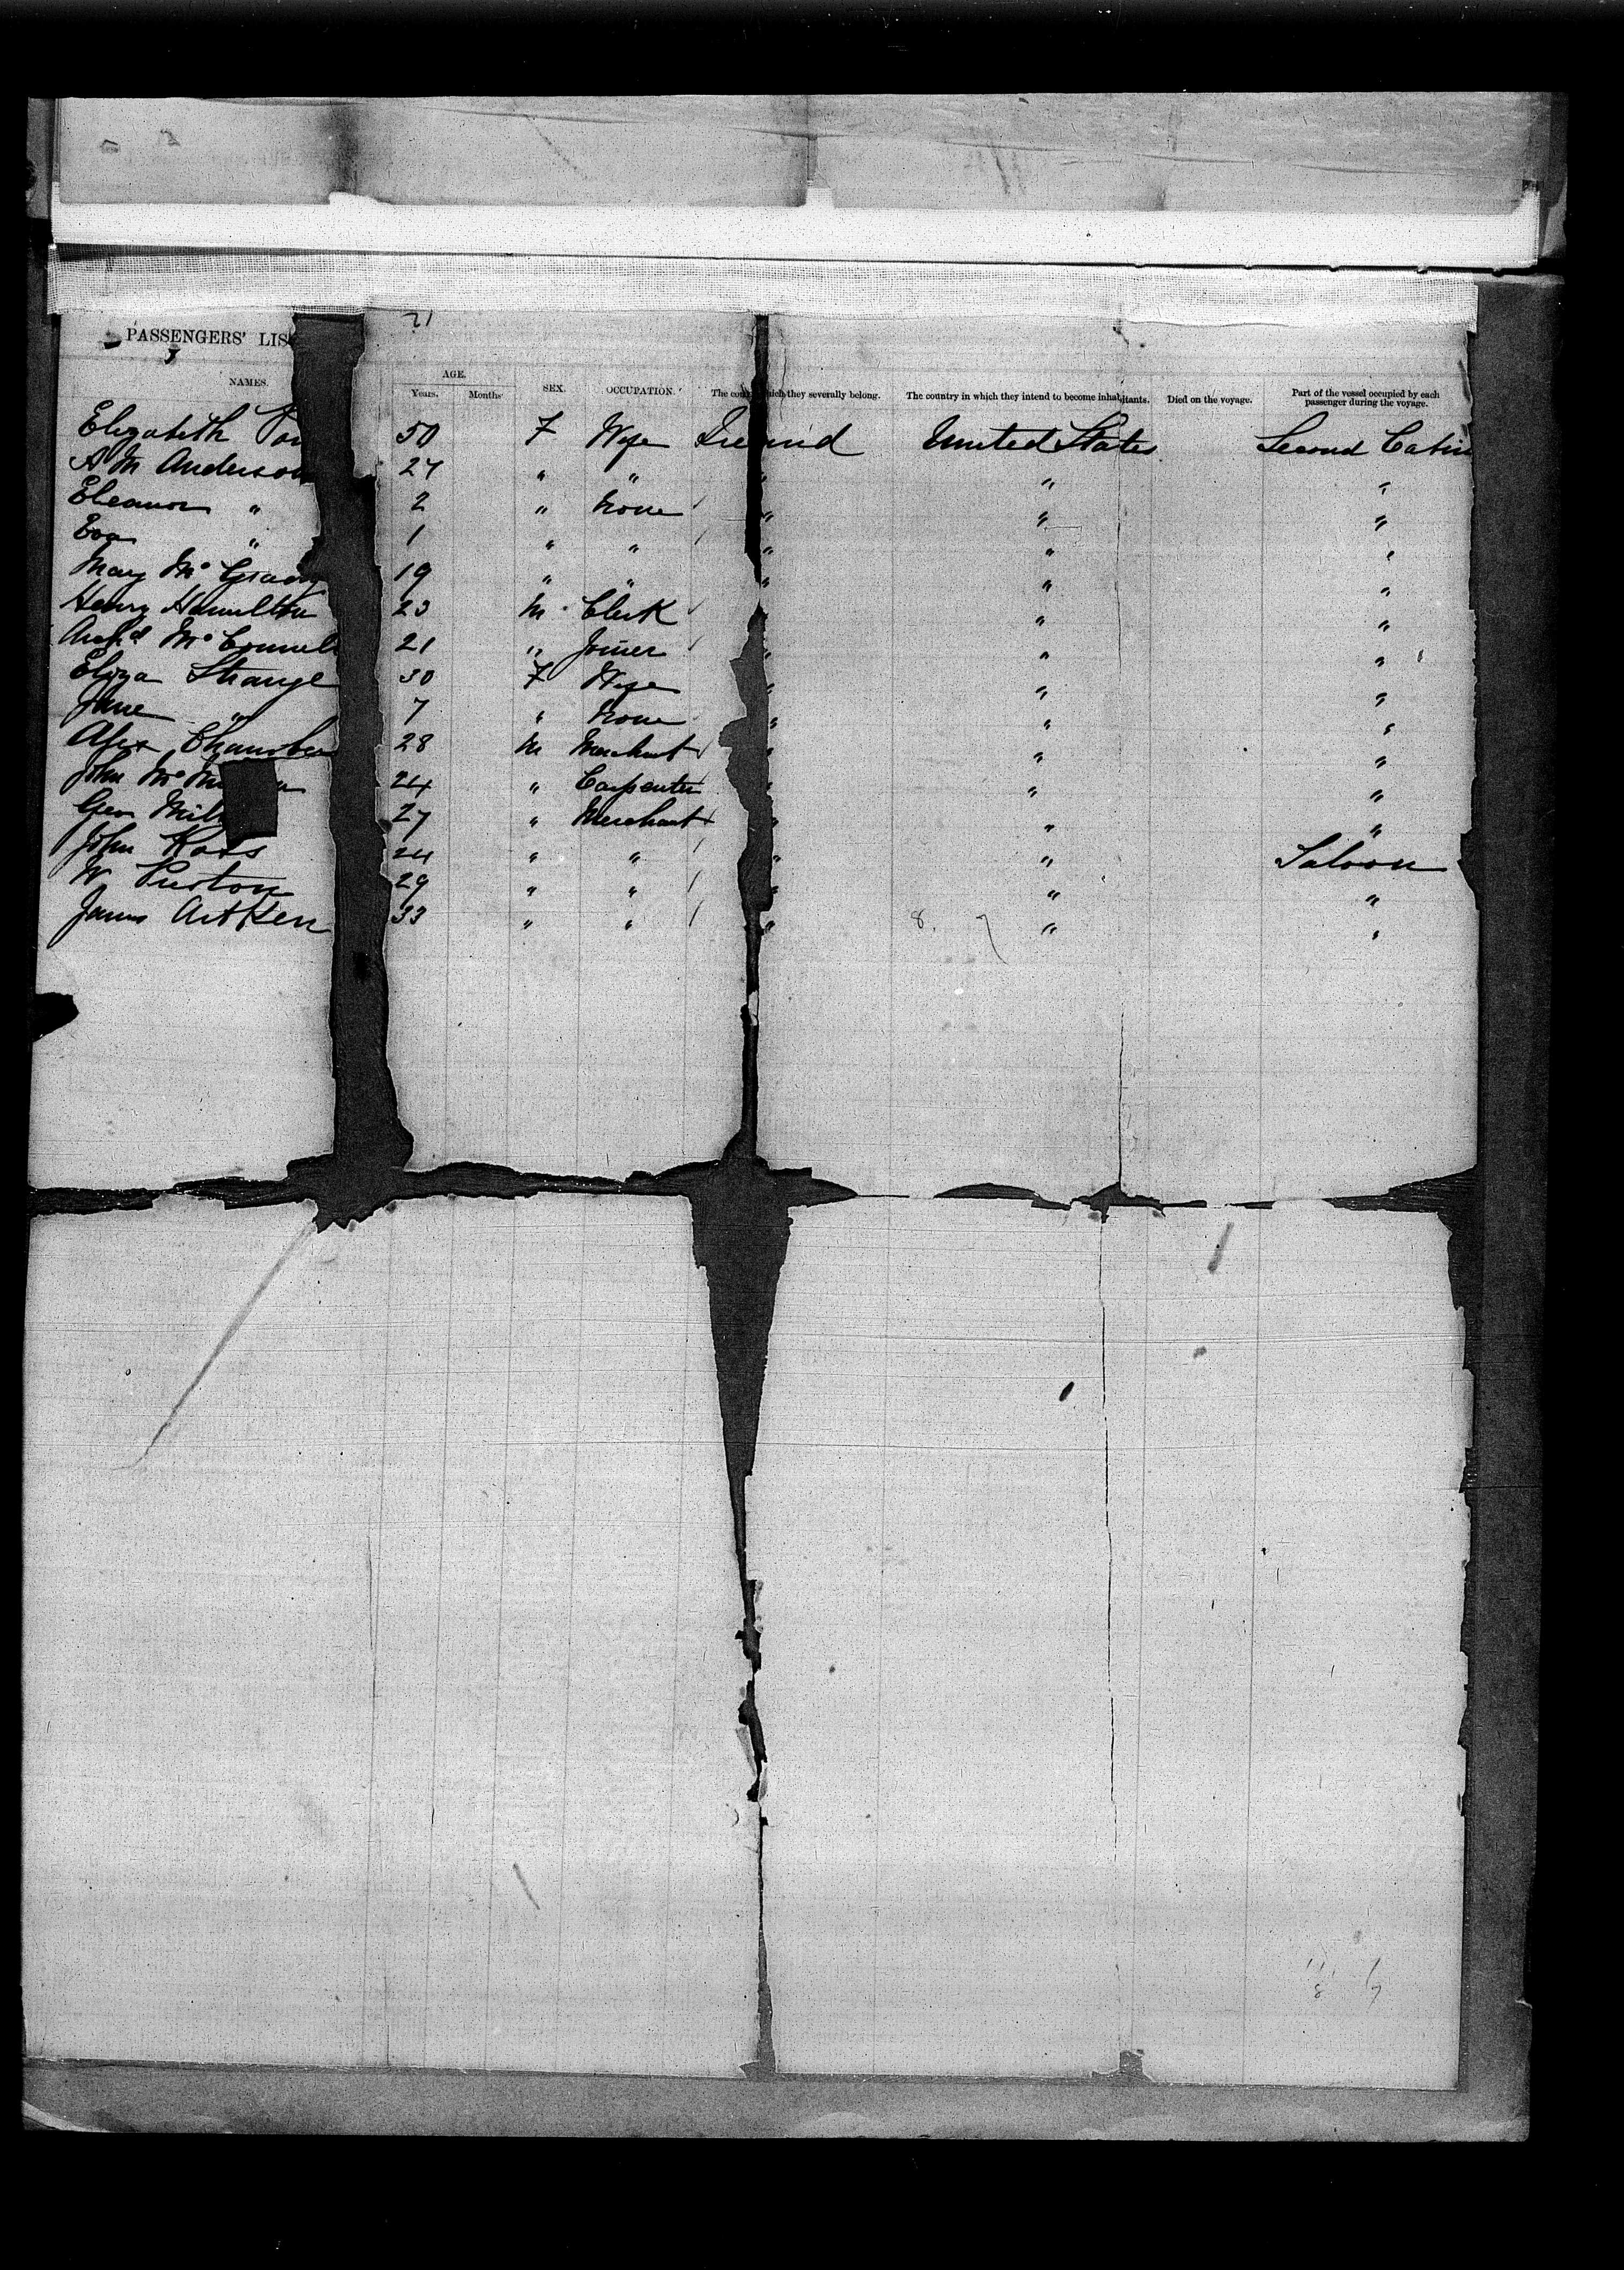 21
PASSENGERS' LIS
NAMES. AGE. SEX. OCCUPATION. The which they severally belong. The country in which they intend to become inhabitants. Died on the voyage. Part of the vessel occupied by each
Years. Months passenger during the voyage.
Elizabeth 50 F Wife Ireland United States Second Cabin
A M Anderson 27 " " " " "
Eleanor " 2 " None " " "
Eva " 1 " " " " "
Mary McGrady 19 " " " " "
Henry Hamilton 23 M Clerk " " "
Archd McConnell 21 " Joiner " " "
Eliza Strange 30 F Wife " " "
Jane " 7 " None " " "
Alex 28 M Merchant " " "
John 24 " Carpenter " " "
Geo 27 " Merchant " " "
John Ross 24 " " " " Saloon
W Preston 29 " " " " "
James Aitken 33 " " " 8. 7 " "
8 7